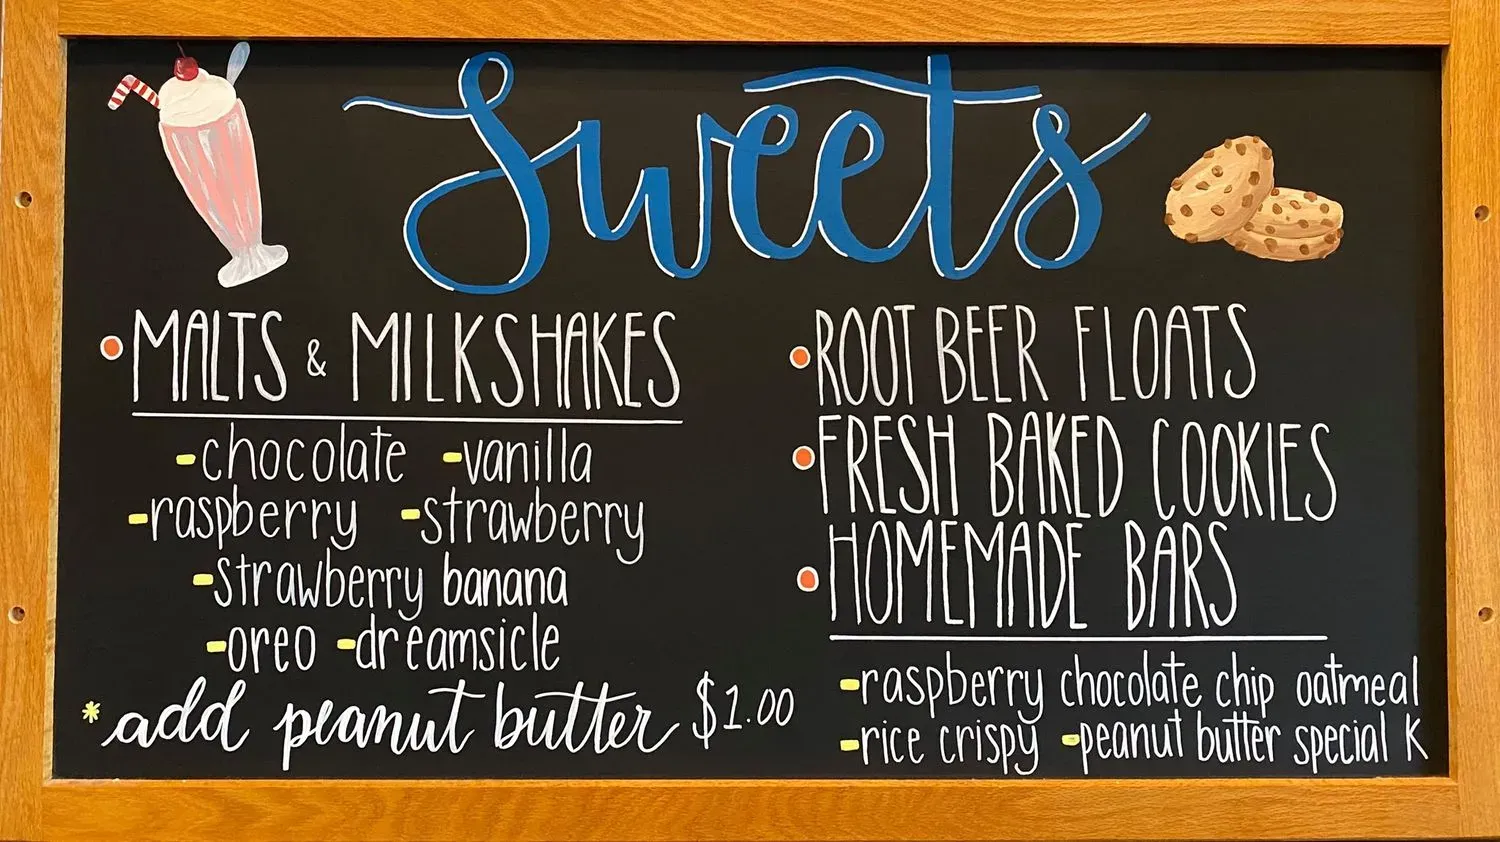 Sweets
MALTS & MILKSHAKES
-chocolate -vanilla
-raspberry -strawberry
-strawberry banana
-oreo -dreamsicle
*add peanut butter $1.00
ROOT BEER FLOATS
FRESH BAKED COOKIES
HOMEMADE BARS
-raspberry chocolate chip oatmeal
-rice crispy -peanut butter special K